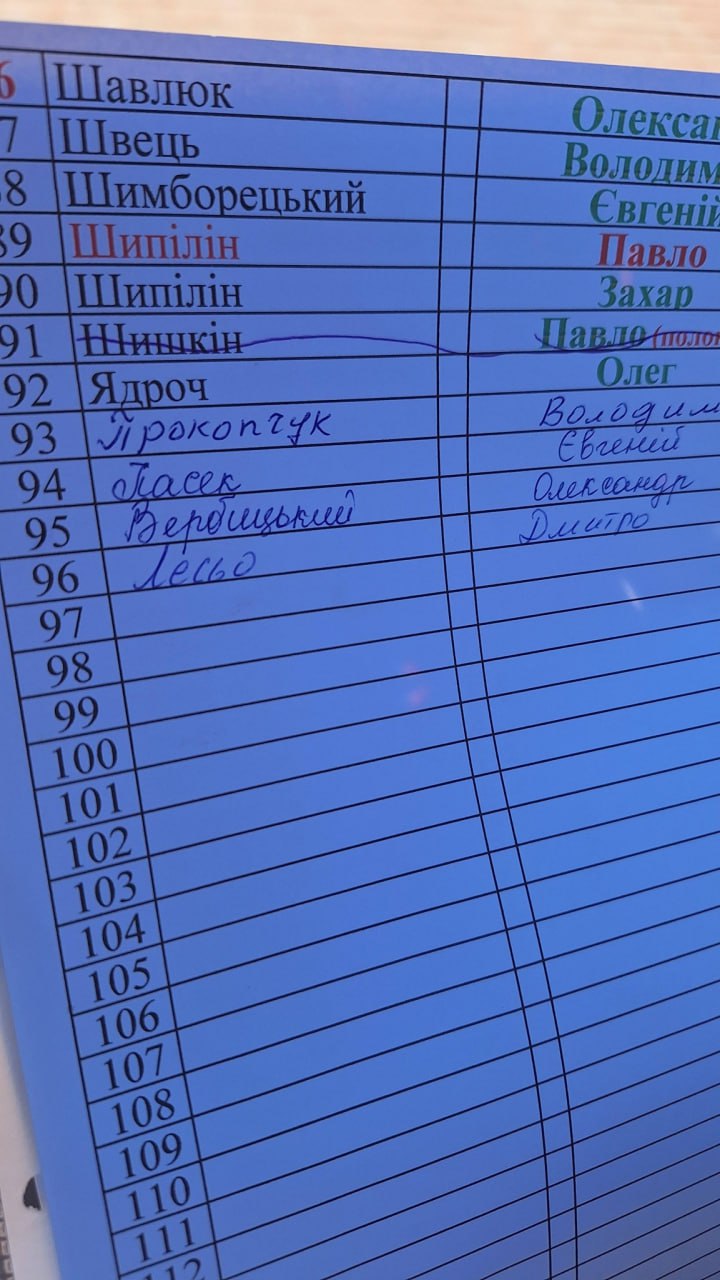 6 Шавлюк Олексан
7 Швець Володим
88 Шимборецький Євгеній
89 Шипілін Павло
90 Шипілін Захар
91 Шишкін Павло (полон
92 Ядроч Олег
93 Прокопчук Володим
94 Пасек Євгеній
95 Вербицький Олександр
96 Лесьо Дмитро
97
98
99
100
101
102
103
104
105
106
107
108
109
110
111
112